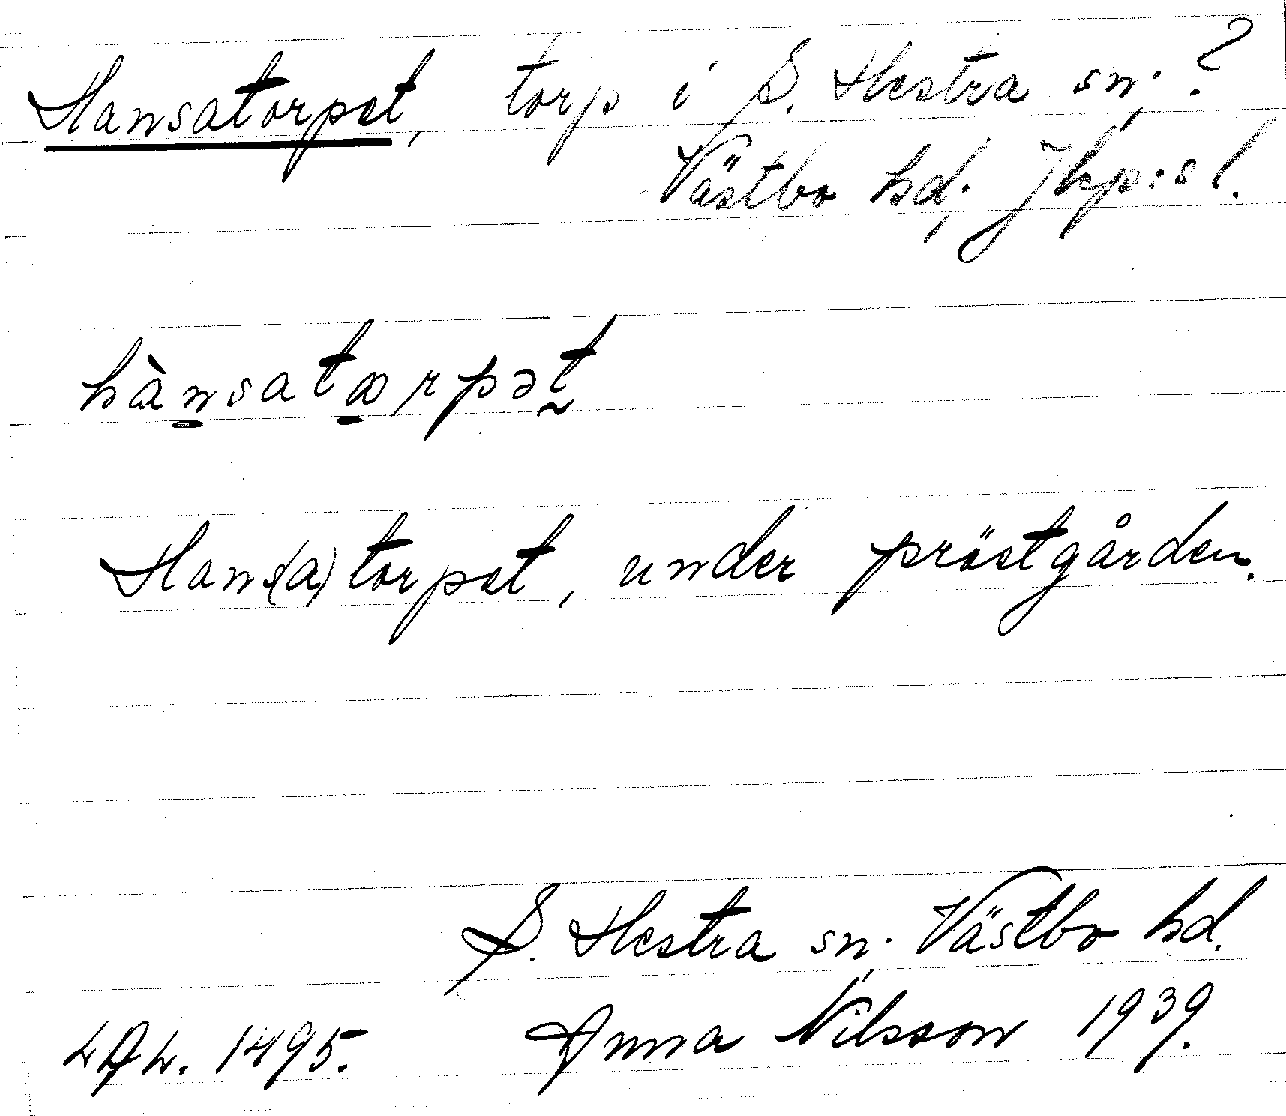 Hansatorpet, torp i S. Hestra sn; ?
Västbo hd; Jkp:s l.
hànsatœrpət
Hans(a)torpet, under prästgården.
S. Hestra sn; Västbo hd.
LAL. 1495. Anna Nilsson 1939.